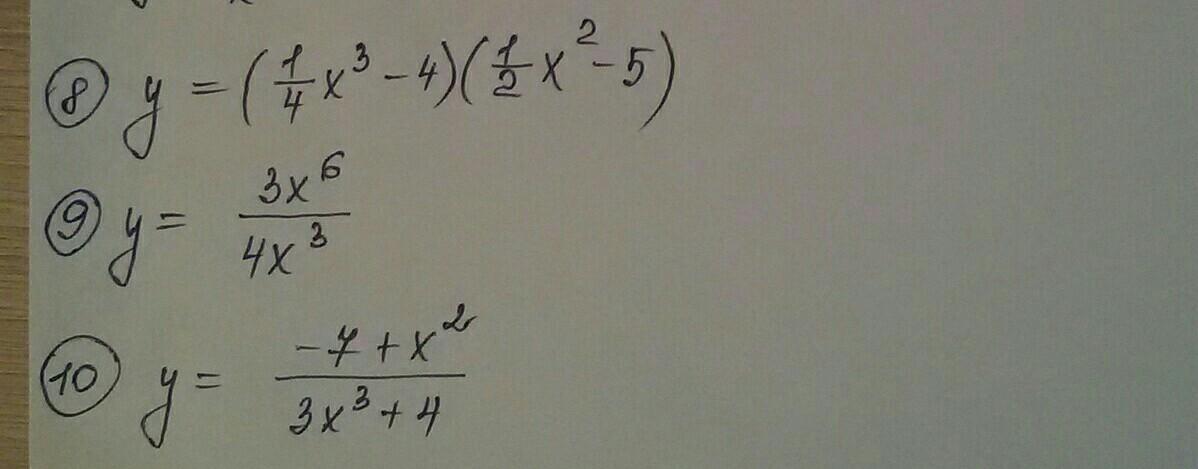 ⑧ y = (1/4 x³ - 4)(1/2 x² - 5)
⑨ y = 3x⁶ / 4x³
⑩ y = -7 + x² / 3x³ + 4